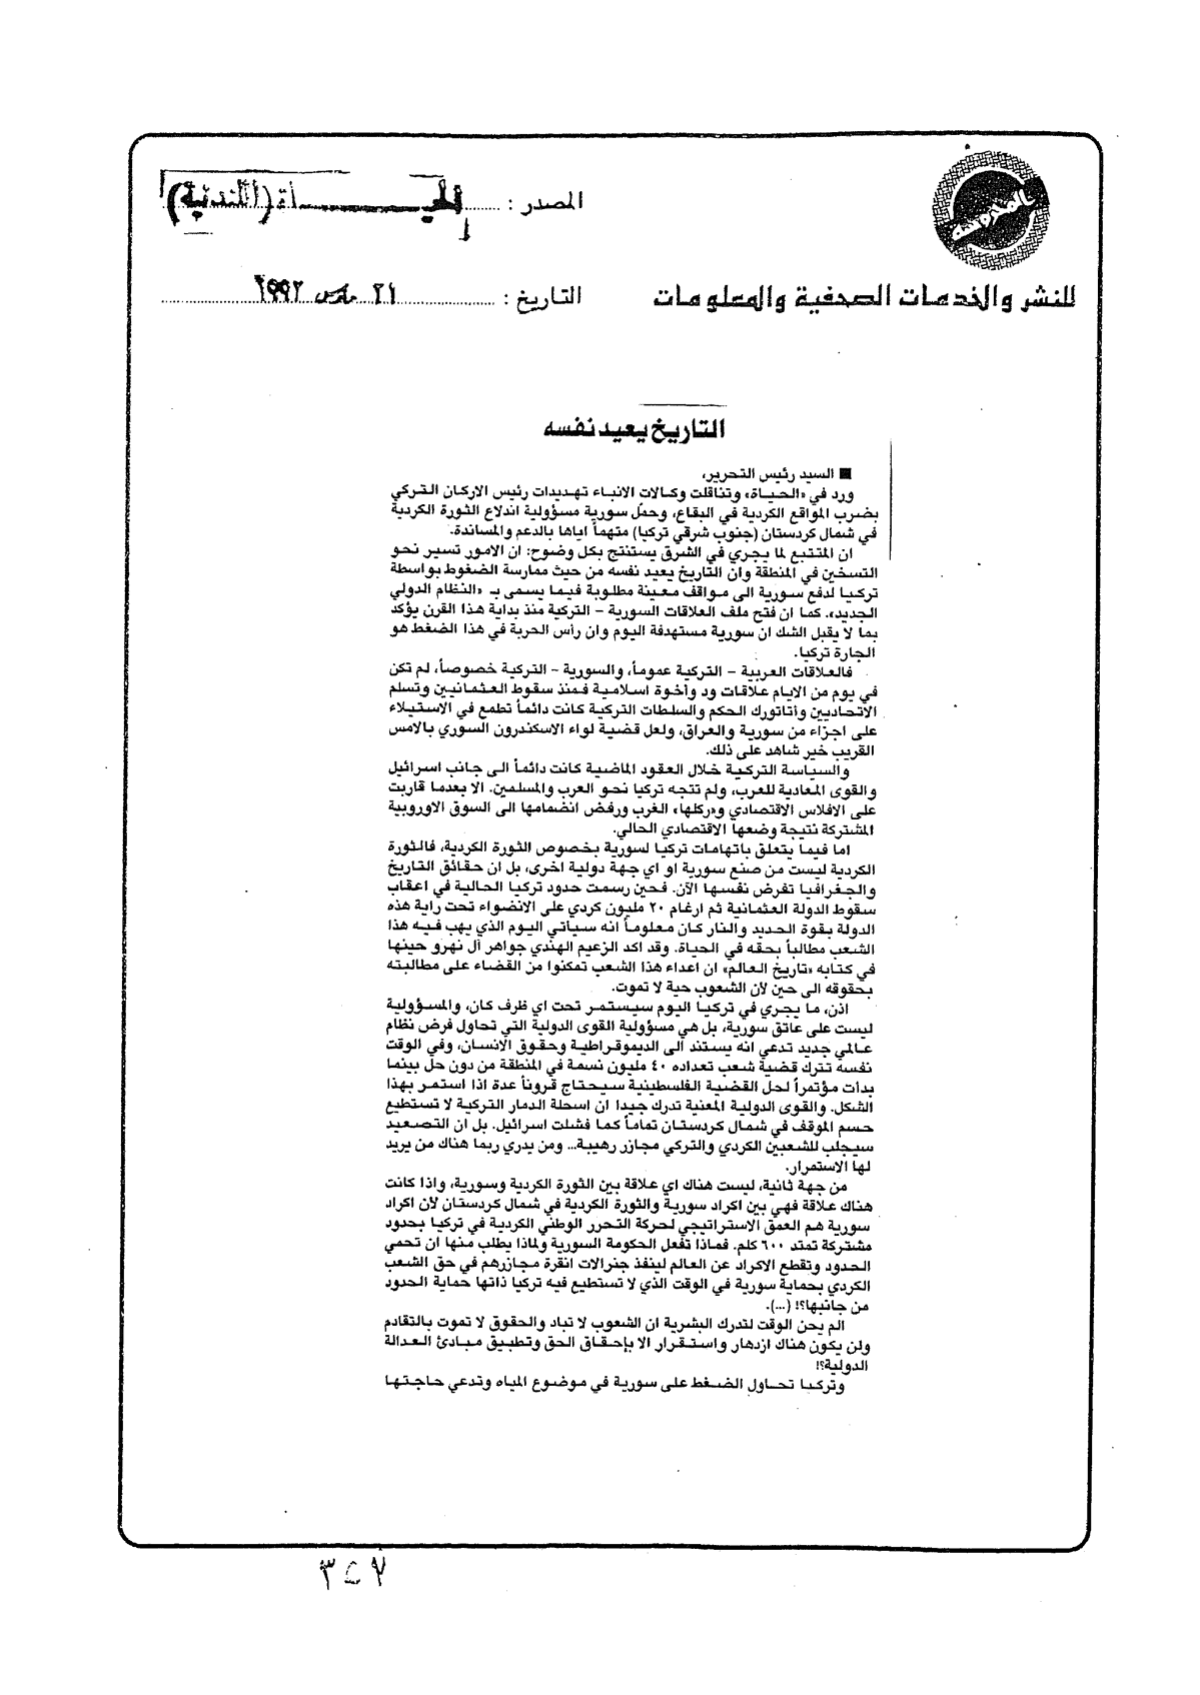 المصدر : الحياة (اللندنية)
للنشر والخدمات الصحفية والمعلومات
التاريخ : ٢١ مارس ١٩٩٢
التاريخ يعيد نفسه
■ السيد رئيس التحرير،
ورد في «الحياة» وتناقلت وكالات الانباء تهديدات رئيس الاركان التركي
بضرب المواقع الكردية في البقاع، وحمّل سورية مسؤولية اندلاع الثورة الكردية
في شمال كردستان (جنوب شرقي تركيا) متهماً اياها بالدعم والمساندة.
ان المتتبع لما يجري في الشرق يستنتج بكل وضوح: ان الامور تسير نحو
التسخين في المنطقة وان التاريخ يعيد نفسه من حيث ممارسة الضغوط بواسطة
تركيا لدفع سورية الى مواقف معينة مطلوبة فيما يسمى بـ «النظام الدولي
الجديد». كما ان فتح ملف العلاقات السورية – التركية منذ بداية هذا القرن يؤكد
بما لا يقبل الشك ان سورية مستهدفة اليوم وان رأس الحربة في هذا الضغط هو
الجارة تركيا.
فالعلاقات العربية – التركية عموماً، والسورية – التركية خصوصاً، لم تكن
في يوم من الايام علاقات ود وأخوة اسلامية فمنذ سقوط العثمانيين وتسلم
الاتحاديين وأتاتورك الحكم والسلطات التركية كانت دائماً تطمع في الاستيلاء
على اجزاء من سورية والعراق، ولعل قضية لواء الاسكندرون السوري بالامس
القريب خير شاهد على ذلك.
والسياسة التركية خلال العقود الماضية كانت دائماً الى جانب اسرائيل
والقوى المعادية للعرب، ولم تتجه تركيا نحو العرب والمسلمين. الا بعدما قاربت
على الافلاس الاقتصادي و«ركلها» الغرب ورفض انضمامها الى السوق الاوروبية
المشتركة نتيجة وضعها الاقتصادي الحالي.
اما فيما يتعلق باتهامات تركيا لسورية بخصوص الثورة الكردية، فالثورة
الكردية ليست من صنع سورية او اي جهة دولية اخرى، بل ان حقائق التاريخ
والجغرافيا تفرض نفسها الآن. فحين رسمت حدود تركيا الحالية في اعقاب
سقوط الدولة العثمانية تم ارغام ٢٠ مليون كردي على الانضواء تحت راية هذه
الدولة بقوة الحديد والنار كان معلوماً انه سيأتي اليوم الذي يهب فيه هذا
الشعب مطالباً بحقه في الحياة. وقد اكد الزعيم الهندي جواهر آل نهرو حينها
في كتابه «تاريخ العالم» ان اعداء هذا الشعب تمكنوا من القضاء على مطالبته
بحقوقه الى حين لأن الشعوب حية لا تموت.
اذن، ما يجري في تركيا اليوم سيستمر تحت اي ظرف كان، والمسؤولية
ليست على عاتق سورية، بل هي مسؤولية القوى الدولية التي تحاول فرض نظام
عالمي جديد تدعي انه يستند الى الديموقراطية وحقوق الانسان، وفي الوقت
نفسه تترك قضية شعب تعداده ٤٠ مليون نسمة في المنطقة من دون حل بينما
بدأت مؤتمراً لحل القضية الفلسطينية سيحتاج قروناً عدة اذا استمر بهذا
الشكل. والقوى الدولية المعنية تدرك جيدا ان اسحلة الدمار التركية لا تستطيع
حسم الموقف في شمال كردستان تماماً كما فشلت اسرائيل. بل ان التصعيد
سيجلب للشعبين الكردي والتركي مجازر رهيبة... ومن يدري ربما هناك من يريد
لها الاستمرار.
من جهة ثانية، ليست هناك اي علاقة بين الثورة الكردية وسورية، واذا كانت
هناك علاقة فهي بين اكراد سورية والثورة الكردية في شمال كردستان لأن اكراد
سورية هم العمق الاستراتيجي لحركة التحرر الوطني الكردية في تركيا بحدود
مشتركة تمتد ٦٠٠ كلم. فماذا تفعل الحكومة السورية ولماذا يطلب منها ان تحمي
الحدود وتقطع الاكراد عن العالم لينفذ جنرالات انقرة مجازرهم في حق الشعب
الكردي بحماية سورية في الوقت الذي لا تستطيع فيه تركيا ذاتها حماية الحدود
من جانبها؟! (...).
الم يحن الوقت لتدرك البشرية ان الشعوب لا تباد والحقوق لا تموت بالتقادم
ولن يكون هناك ازدهار واستقرار الا بإحقاق الحق وتطبيق مبادئ العدالة
الدولية؟!
وتركيا تحاول الضغط على سورية في موضوع المياه وتدعي حاجتها